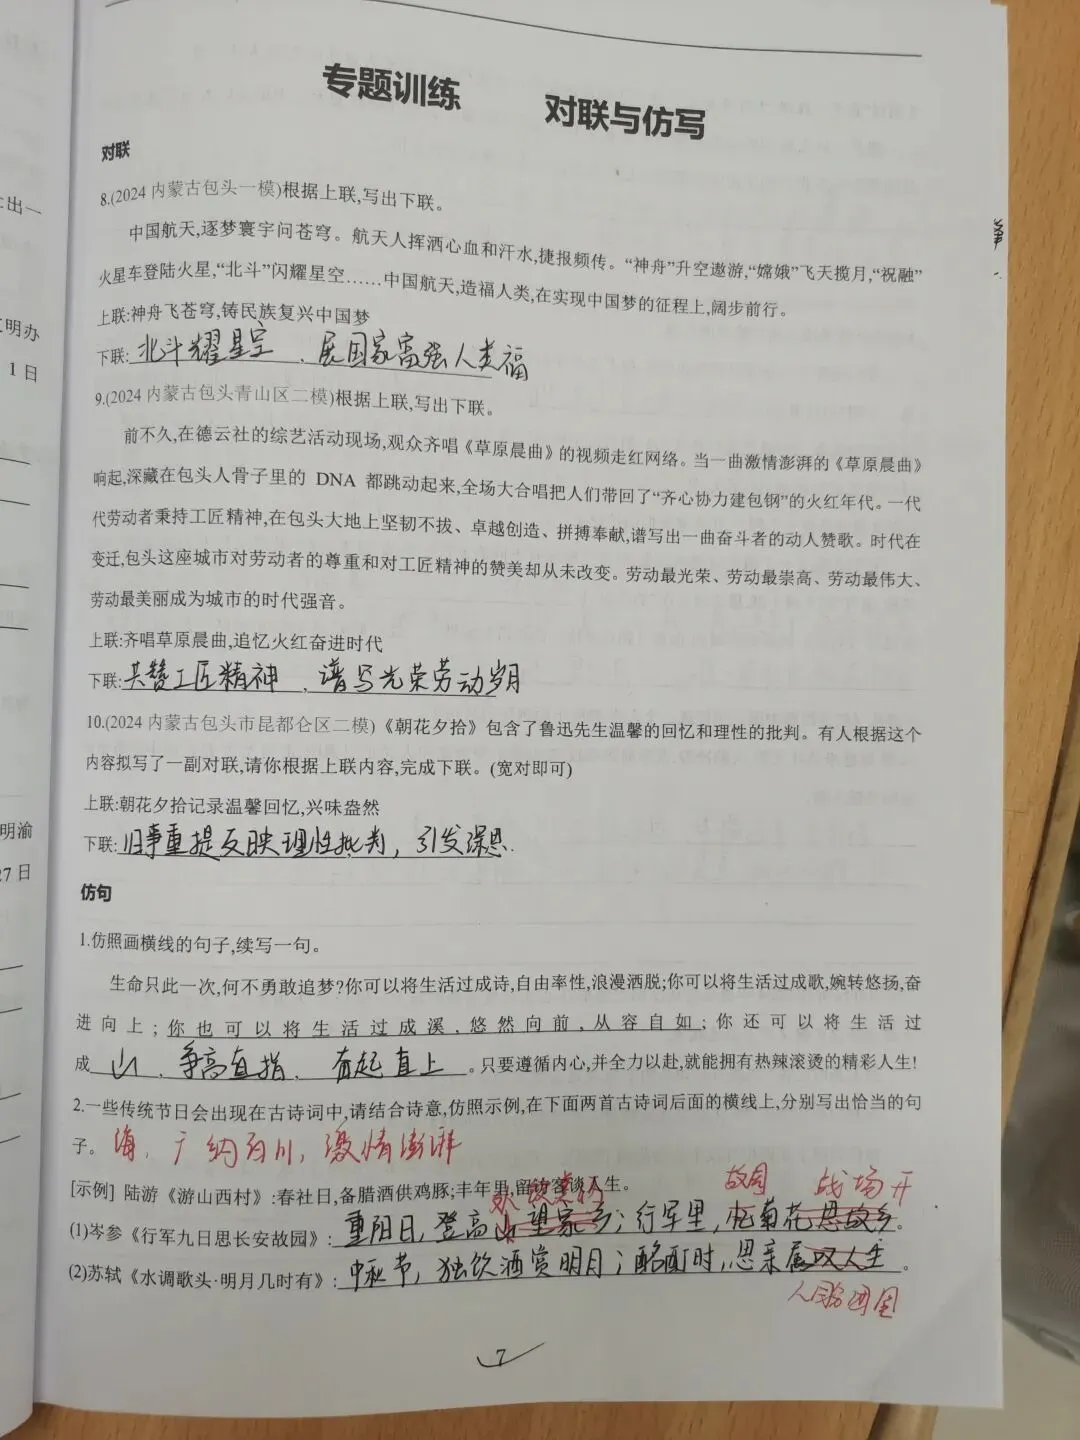 专题训练 对联与仿写
对联
8.(2024内蒙古包头一模)根据上联,写出下联。
中国航天,逐梦寰宇问苍穹。航天人挥洒心血和汗水,捷报频传。“神舟”升空遨游,“嫦娥”飞天揽月,“祝融”
火星车登陆火星,“北斗”闪耀星空……中国航天,造福人类,在实现中国梦的征程上,阔步前行。
上联:神舟飞苍穹,铸民族复兴中国梦
下联:北斗耀星空,展国家富强人类福
9.(2024内蒙古包头青山区二模)根据上联,写出下联。
前不久,在德云社的综艺活动现场,观众齐唱《草原晨曲》的视频走红网络。当一曲激情澎湃的《草原晨曲》
响起,深藏在包头人骨子里的 DNA 都跳动起来,全场大合唱把人们带回了“齐心协力建包钢”的火红年代。一代
代劳动者秉持工匠精神,在包头大地上坚韧不拔、卓越创造、拼搏奉献,谱写出一曲奋斗者的动人赞歌。时代在
变迁,包头这座城市对劳动者的尊重和对工匠精神的赞美却从未改变。劳动最光荣、劳动最崇高、劳动最伟大、
劳动最美丽成为城市的时代强音。
上联:齐唱草原晨曲,追忆火红奋进时代
下联:共赞工匠精神,谱写光荣劳动岁月
10.(2024内蒙古包头市昆都仑区二模)《朝花夕拾》包含了鲁迅先生温馨的回忆和理性的批判。有人根据这个
内容拟写了一副对联,请你根据上联内容,完成下联。(宽对即可)
上联:朝花夕拾记录温馨回忆,兴味盎然
下联:旧事重提反映理性批判,引发深思.
仿句
1.仿照画横线的句子,续写一句。
生命只此一次,何不勇敢追梦?你可以将生活过成诗,自由率性,浪漫洒脱;你可以将生活过成歌,婉转悠扬,奋
进向上;你也可以将生活过成溪,悠然向前,从容自如;你还可以将生活过
成 山,争高直指,奋起直上。只要遵循内心,并全力以赴,就能拥有热辣滚烫的精彩人生!
2.一些传统节日会出现在古诗词中,请结合诗意,仿照示例,在下面两首古诗词后面的横线上,分别写出恰当的句
子。海,广纳百川,激情澎湃
[示例] 陆游《游山西村》:春社日,备腊酒供鸡豚;丰年里,留访客谈人生。
故园 战场开
(1)岑参《行军九日思长安故园》:重阳日,登高山望家乡;行军里,忆菊花思故乡。
(2)苏轼《水调歌头·明月几时有》:中秋节,独饮酒赏明月;酩酊时,思亲属叹人生。
7
出一
明办
1日
明渝
27日